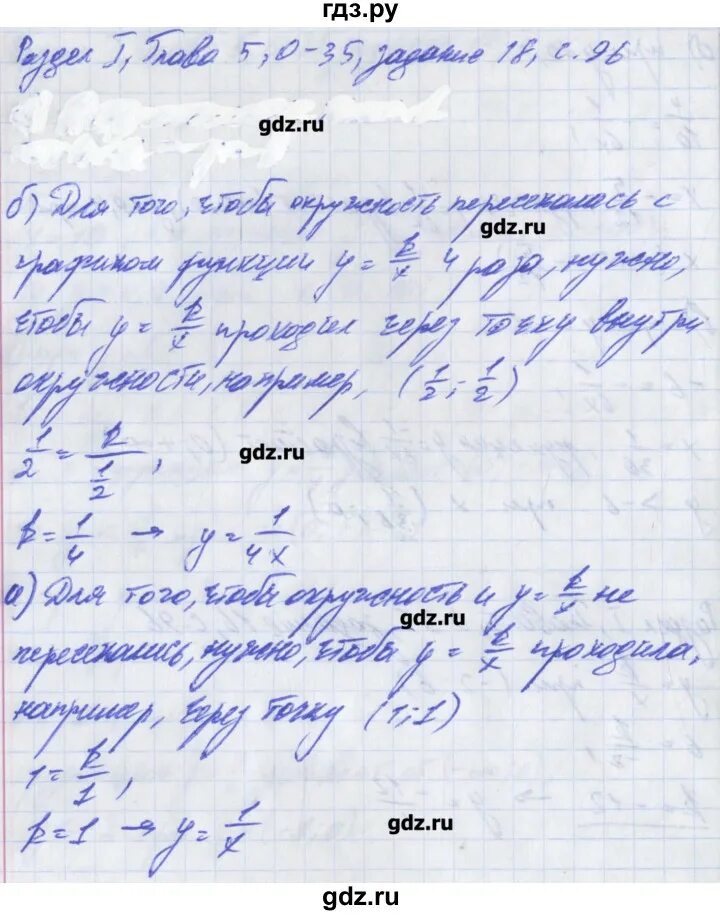 гдз.ру
Раздел I, Глава 5, О-35, задание 18, с. 96
gdz.ru
б) Для того, чтобы окружность пересекалась с
gdz.ru
графиком функции y = k/x 4 раза, нужно,
чтобы y = k/x проходил через точку внутри
окружности, например, (1/2; 1/2)
1/2 = k/(1/2),
gdz.ru
k = 1/4 → y = 1/4x
а) Для того, чтобы окружность и y = k/x не
gdz.ru
пересекались, нужно, чтобы y = k/x проходила,
например, через точку (1; 1)
1 = k/1,
k = 1 → y = 1/x
gdz.ru
gdz.ru